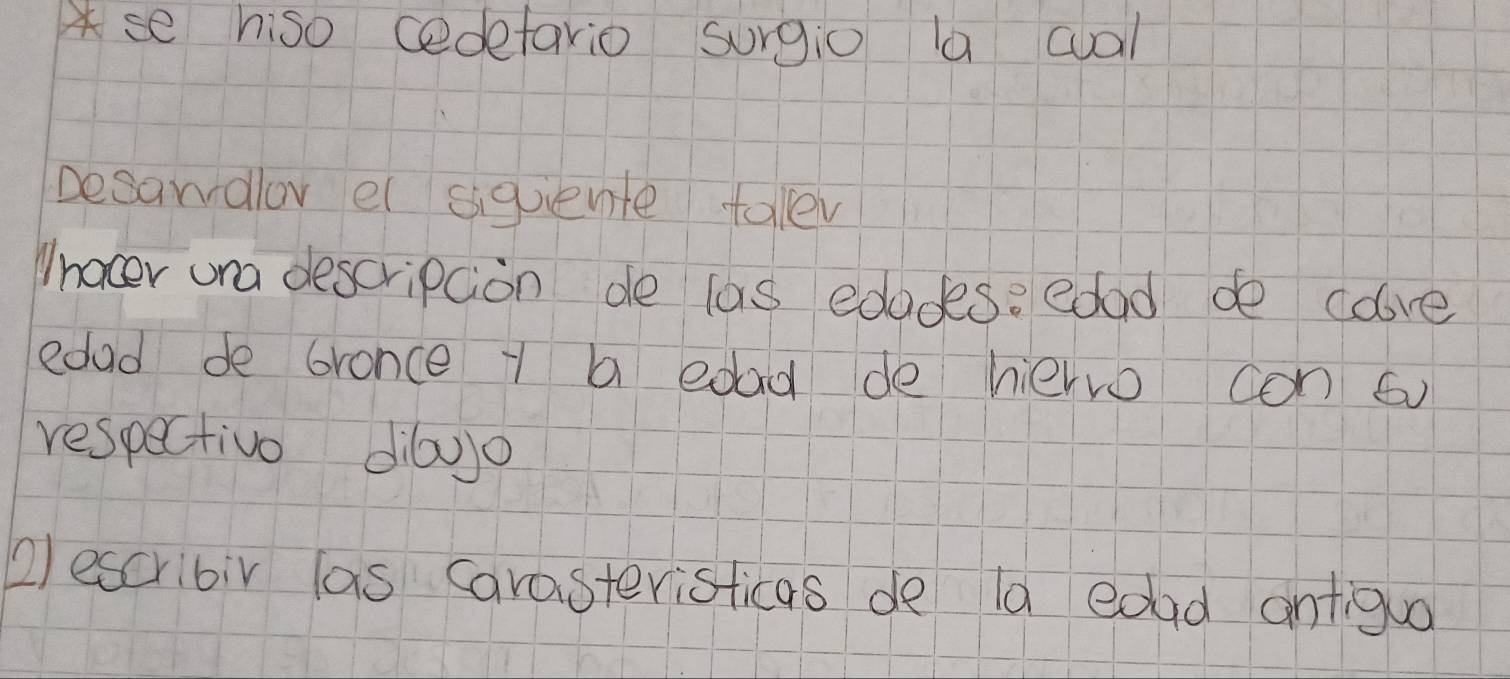 * se hiso cedetario surgio la cual
Desarrollar el siguiente taller
1) hacer una descripción de las edades: edad de cobre
edad de bronce y la edad de hierro con su
respectivo dibujo
2) escribir las carasteristicas de la edad antigua